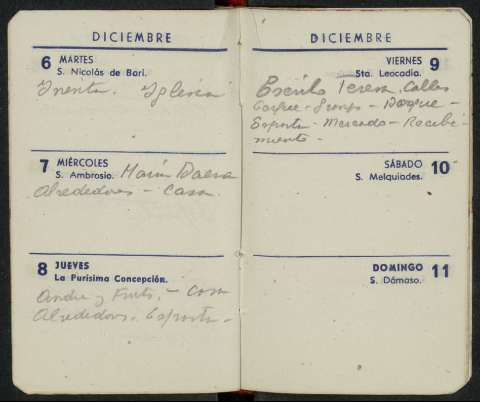 DICIEMBRE
6 MARTES
S. Nicolás de Bari.
Iglesia
7 MIÉRCOLES
S. Ambrosio. María
Alrededores - Casa.
8 JUEVES
La Purísima Concepción.
Andre y Fruto. - Casa
Alrededors. Esporta -
DICIEMBRE
VIERNES 9
Sta. Leocadia.
Escrito Teresa. Calles
Parque -
Esporta - Mercado - Recibi-
miento -
SÁBADO 10
S. Melquiades.
DOMINGO 11
S. Dámaso.